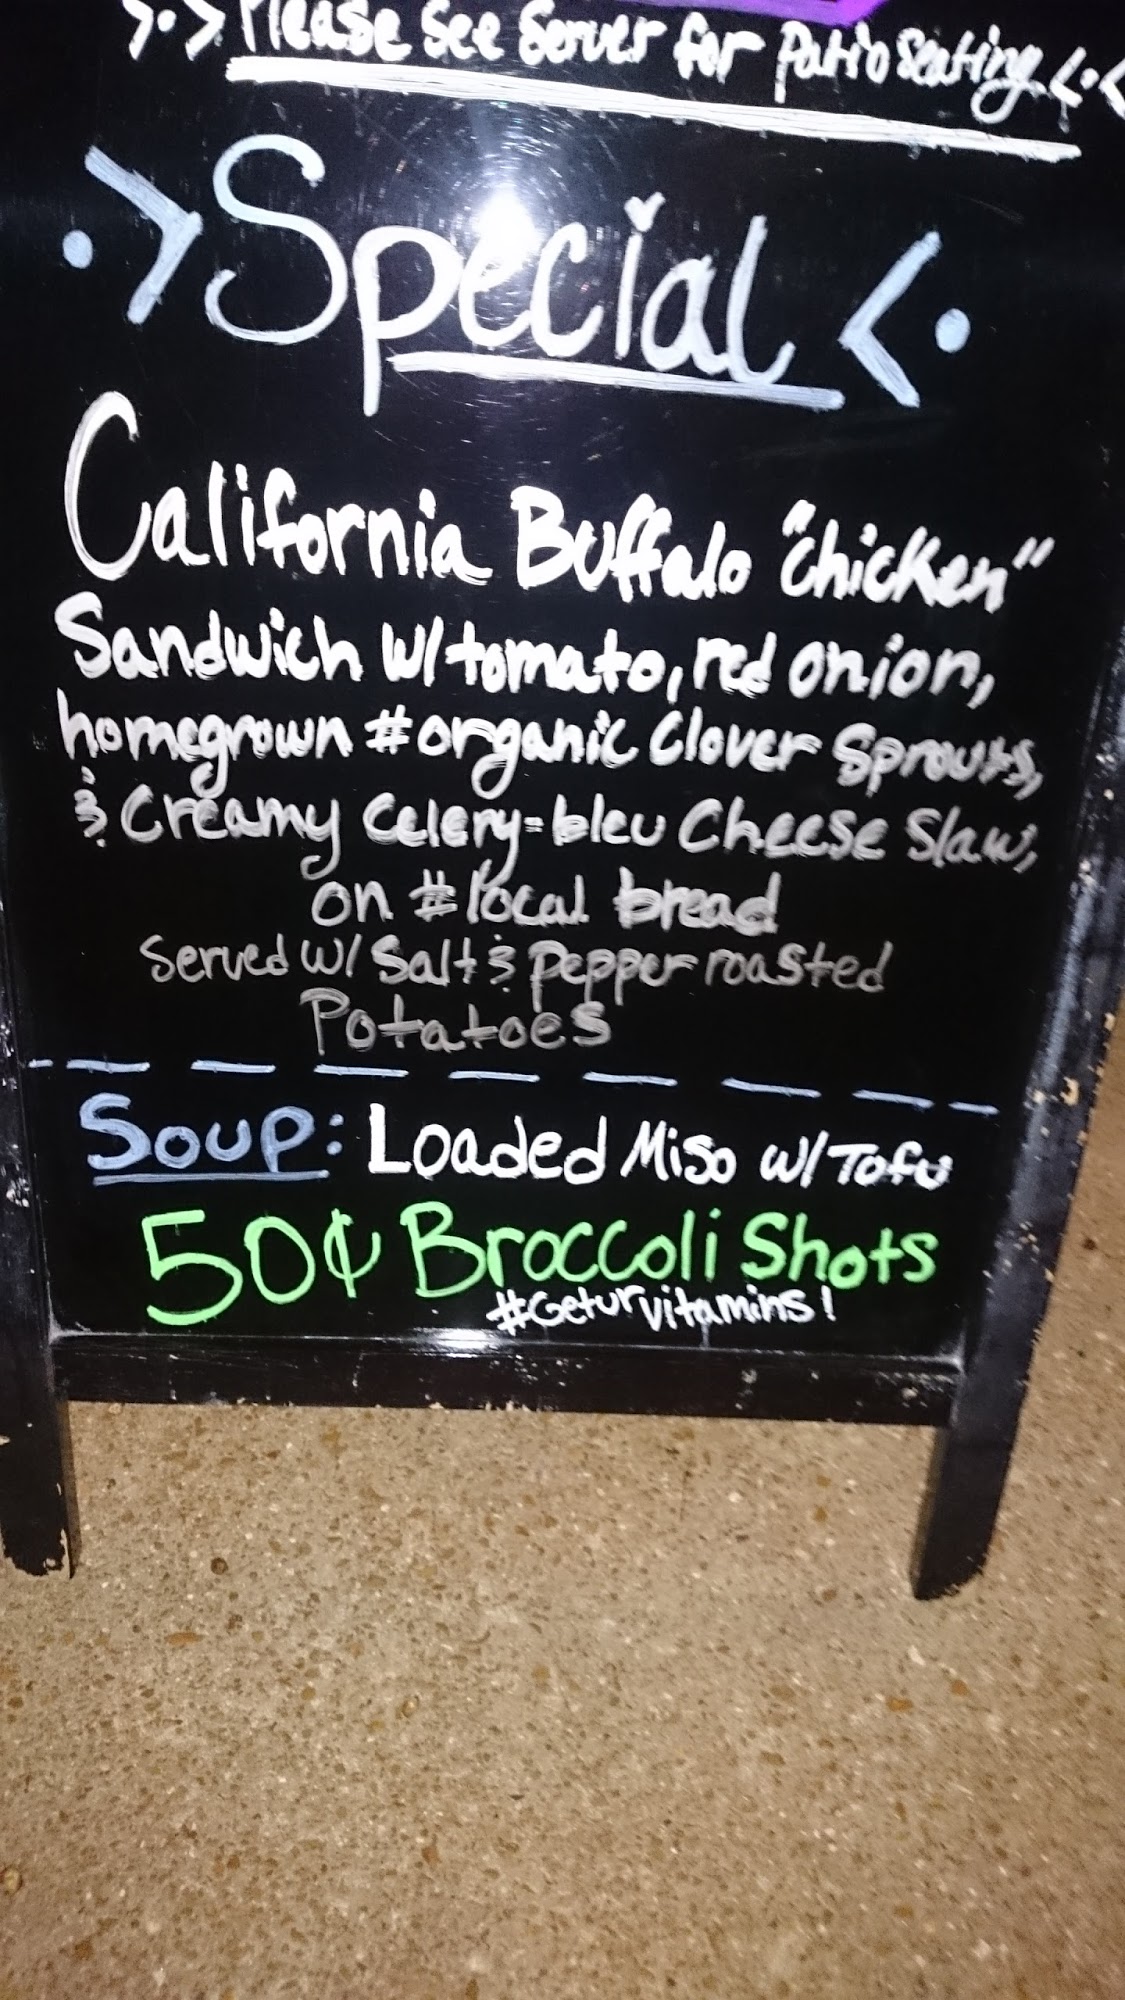 >·> Please See Server for Patio Seating <·<
·> Special <·
California Buffalo "chicken"
Sandwich w/ tomato, red onion,
homegrown #organic Clover Sprouts,
& Creamy Celery-bleu Cheese Slaw,
on #local bread
Served w/ Salt & pepper roasted
Potatoes
Soup: Loaded Miso w/ Tofu
50¢ Broccoli Shots
#Geturvitamins!